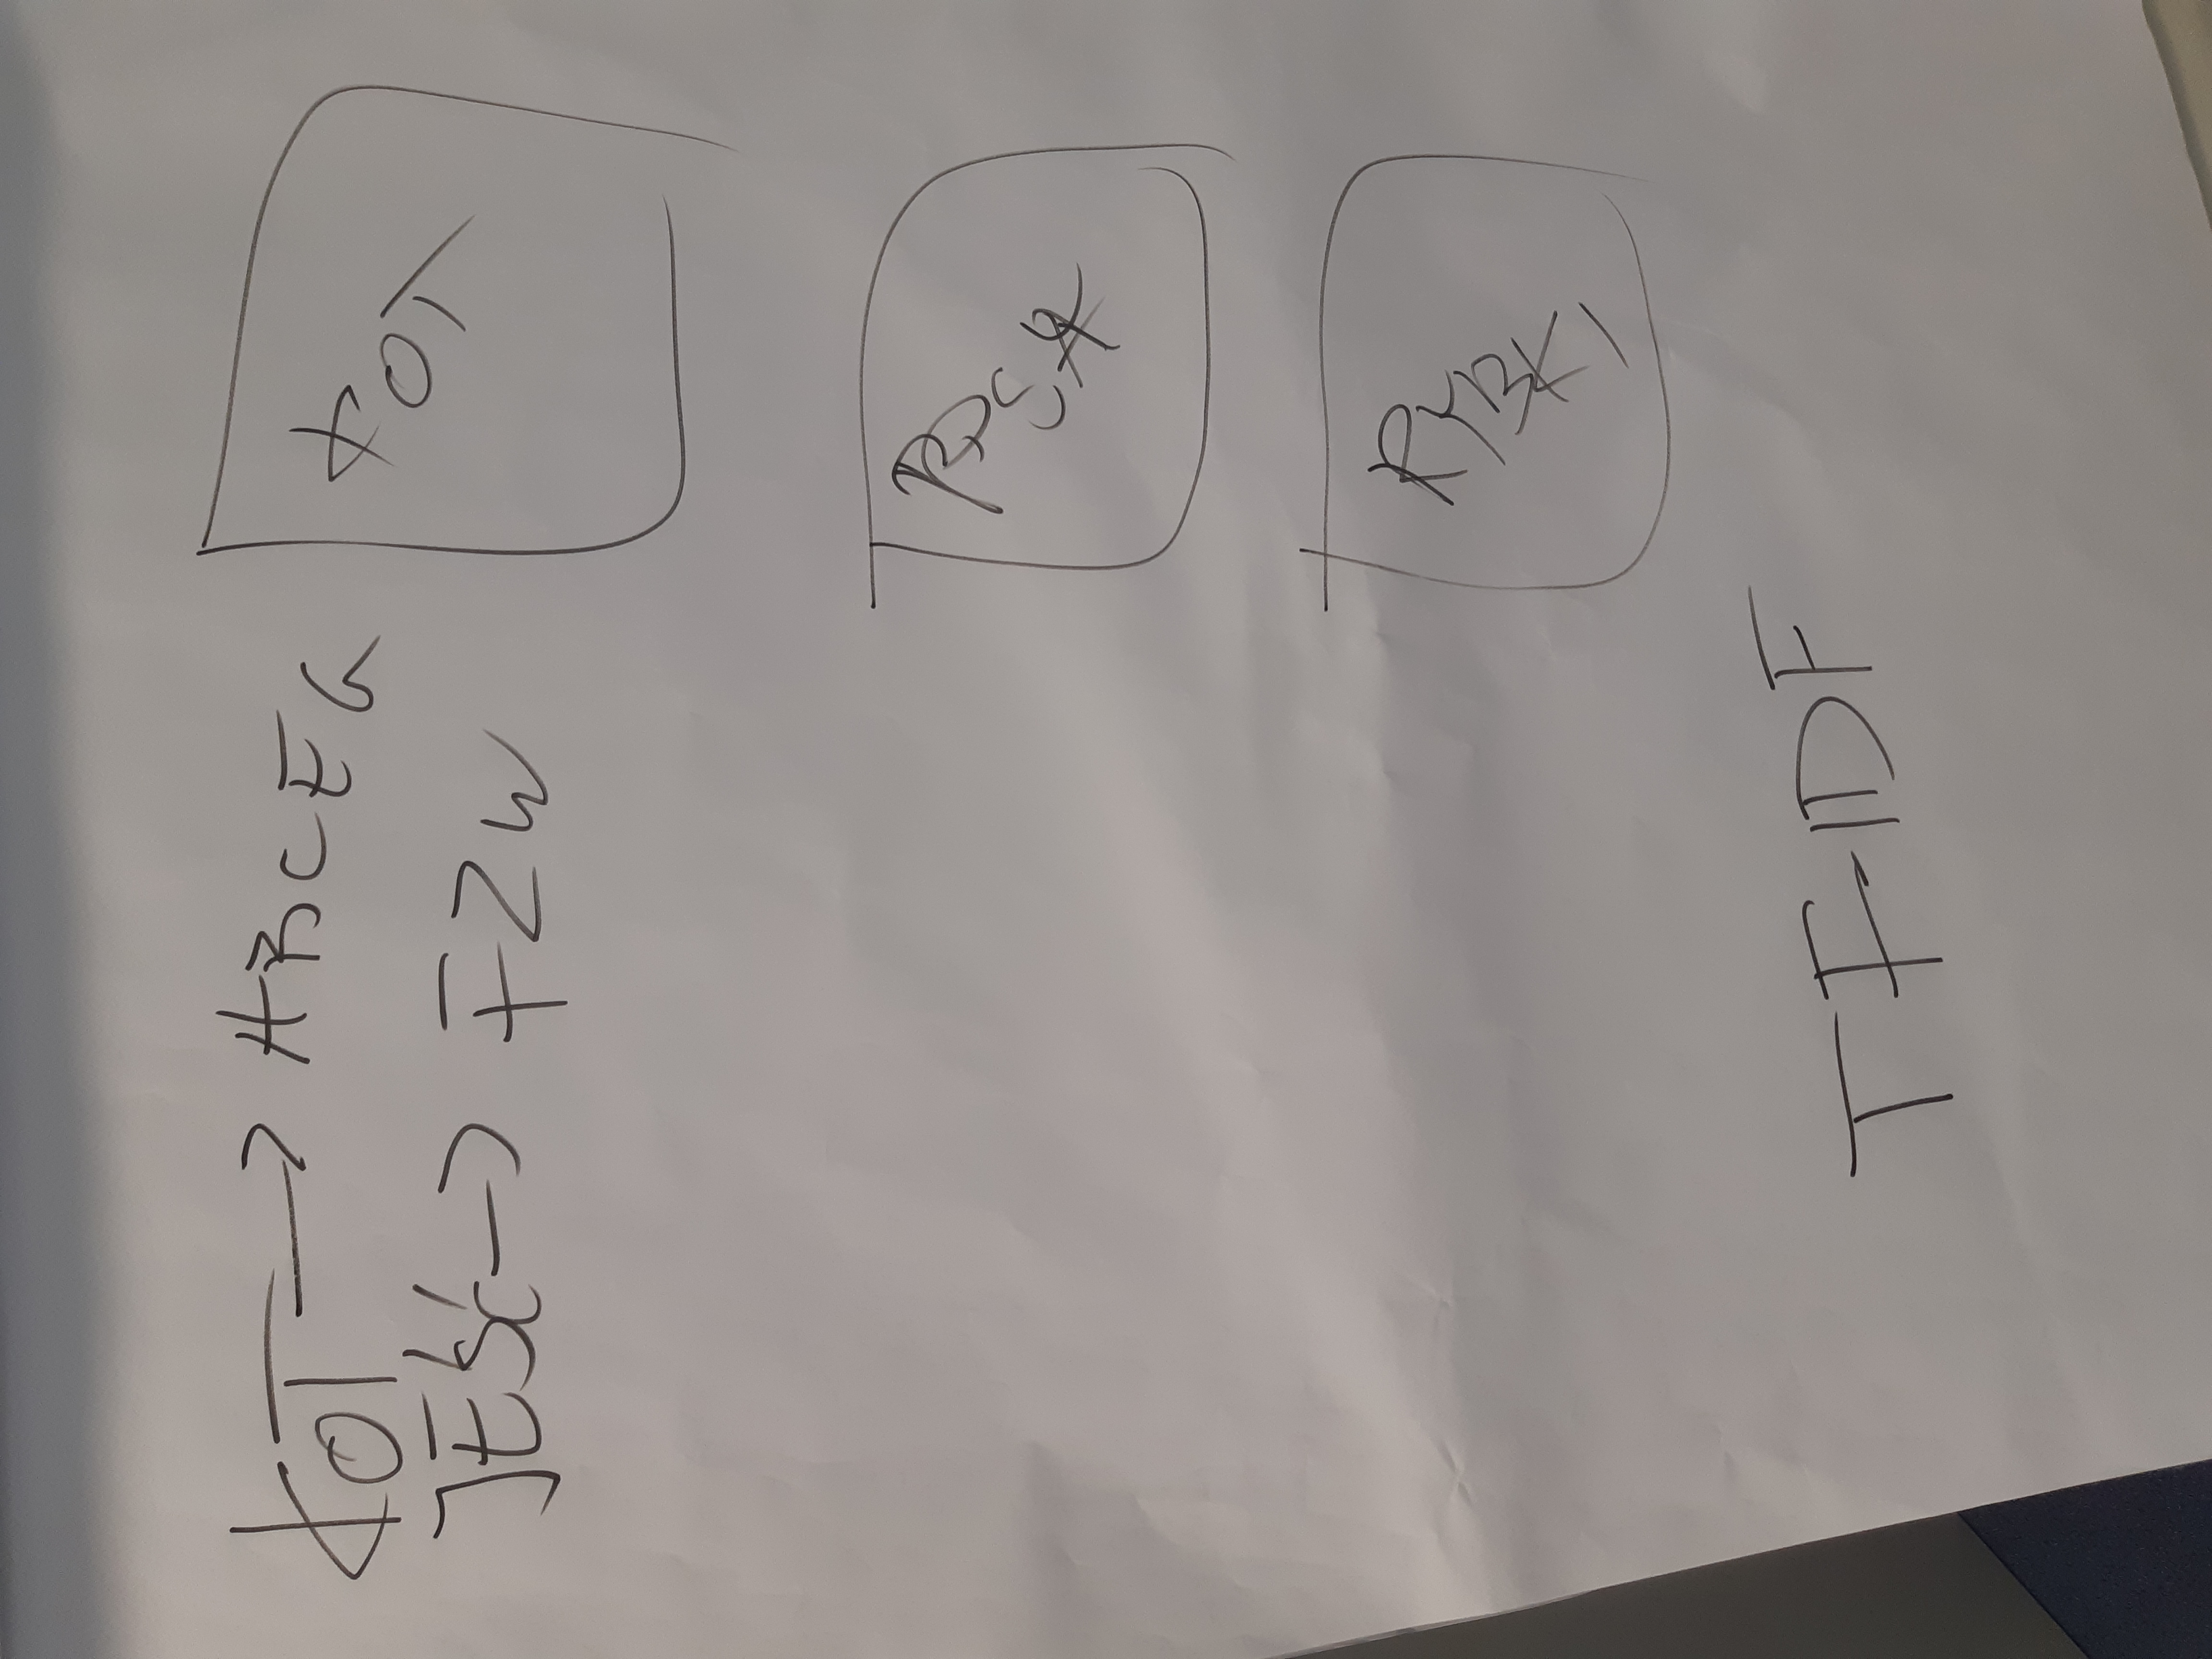 KOT → ABCEG
JEŚĆ → FZW
KOT
RYBKI
TF-IDF